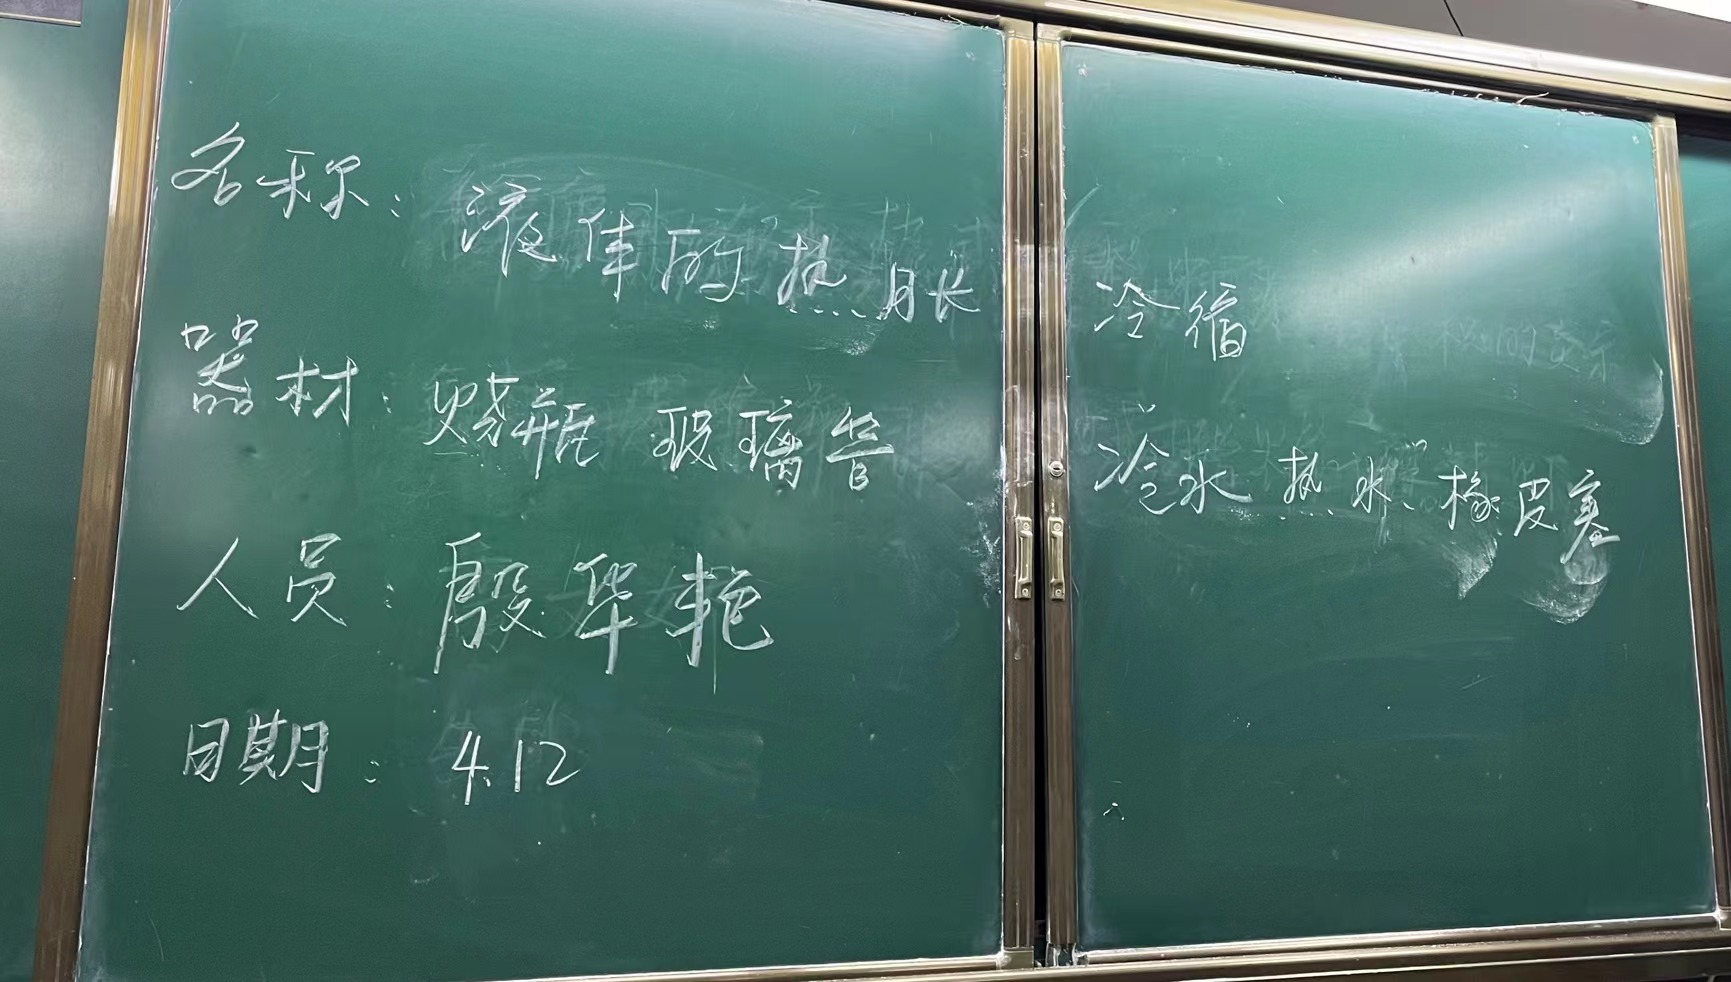 名称：液体的热胀冷缩
器材：烧瓶 玻璃管 冷水 热水 橡皮塞
人员：殷华艳
日期：4.12